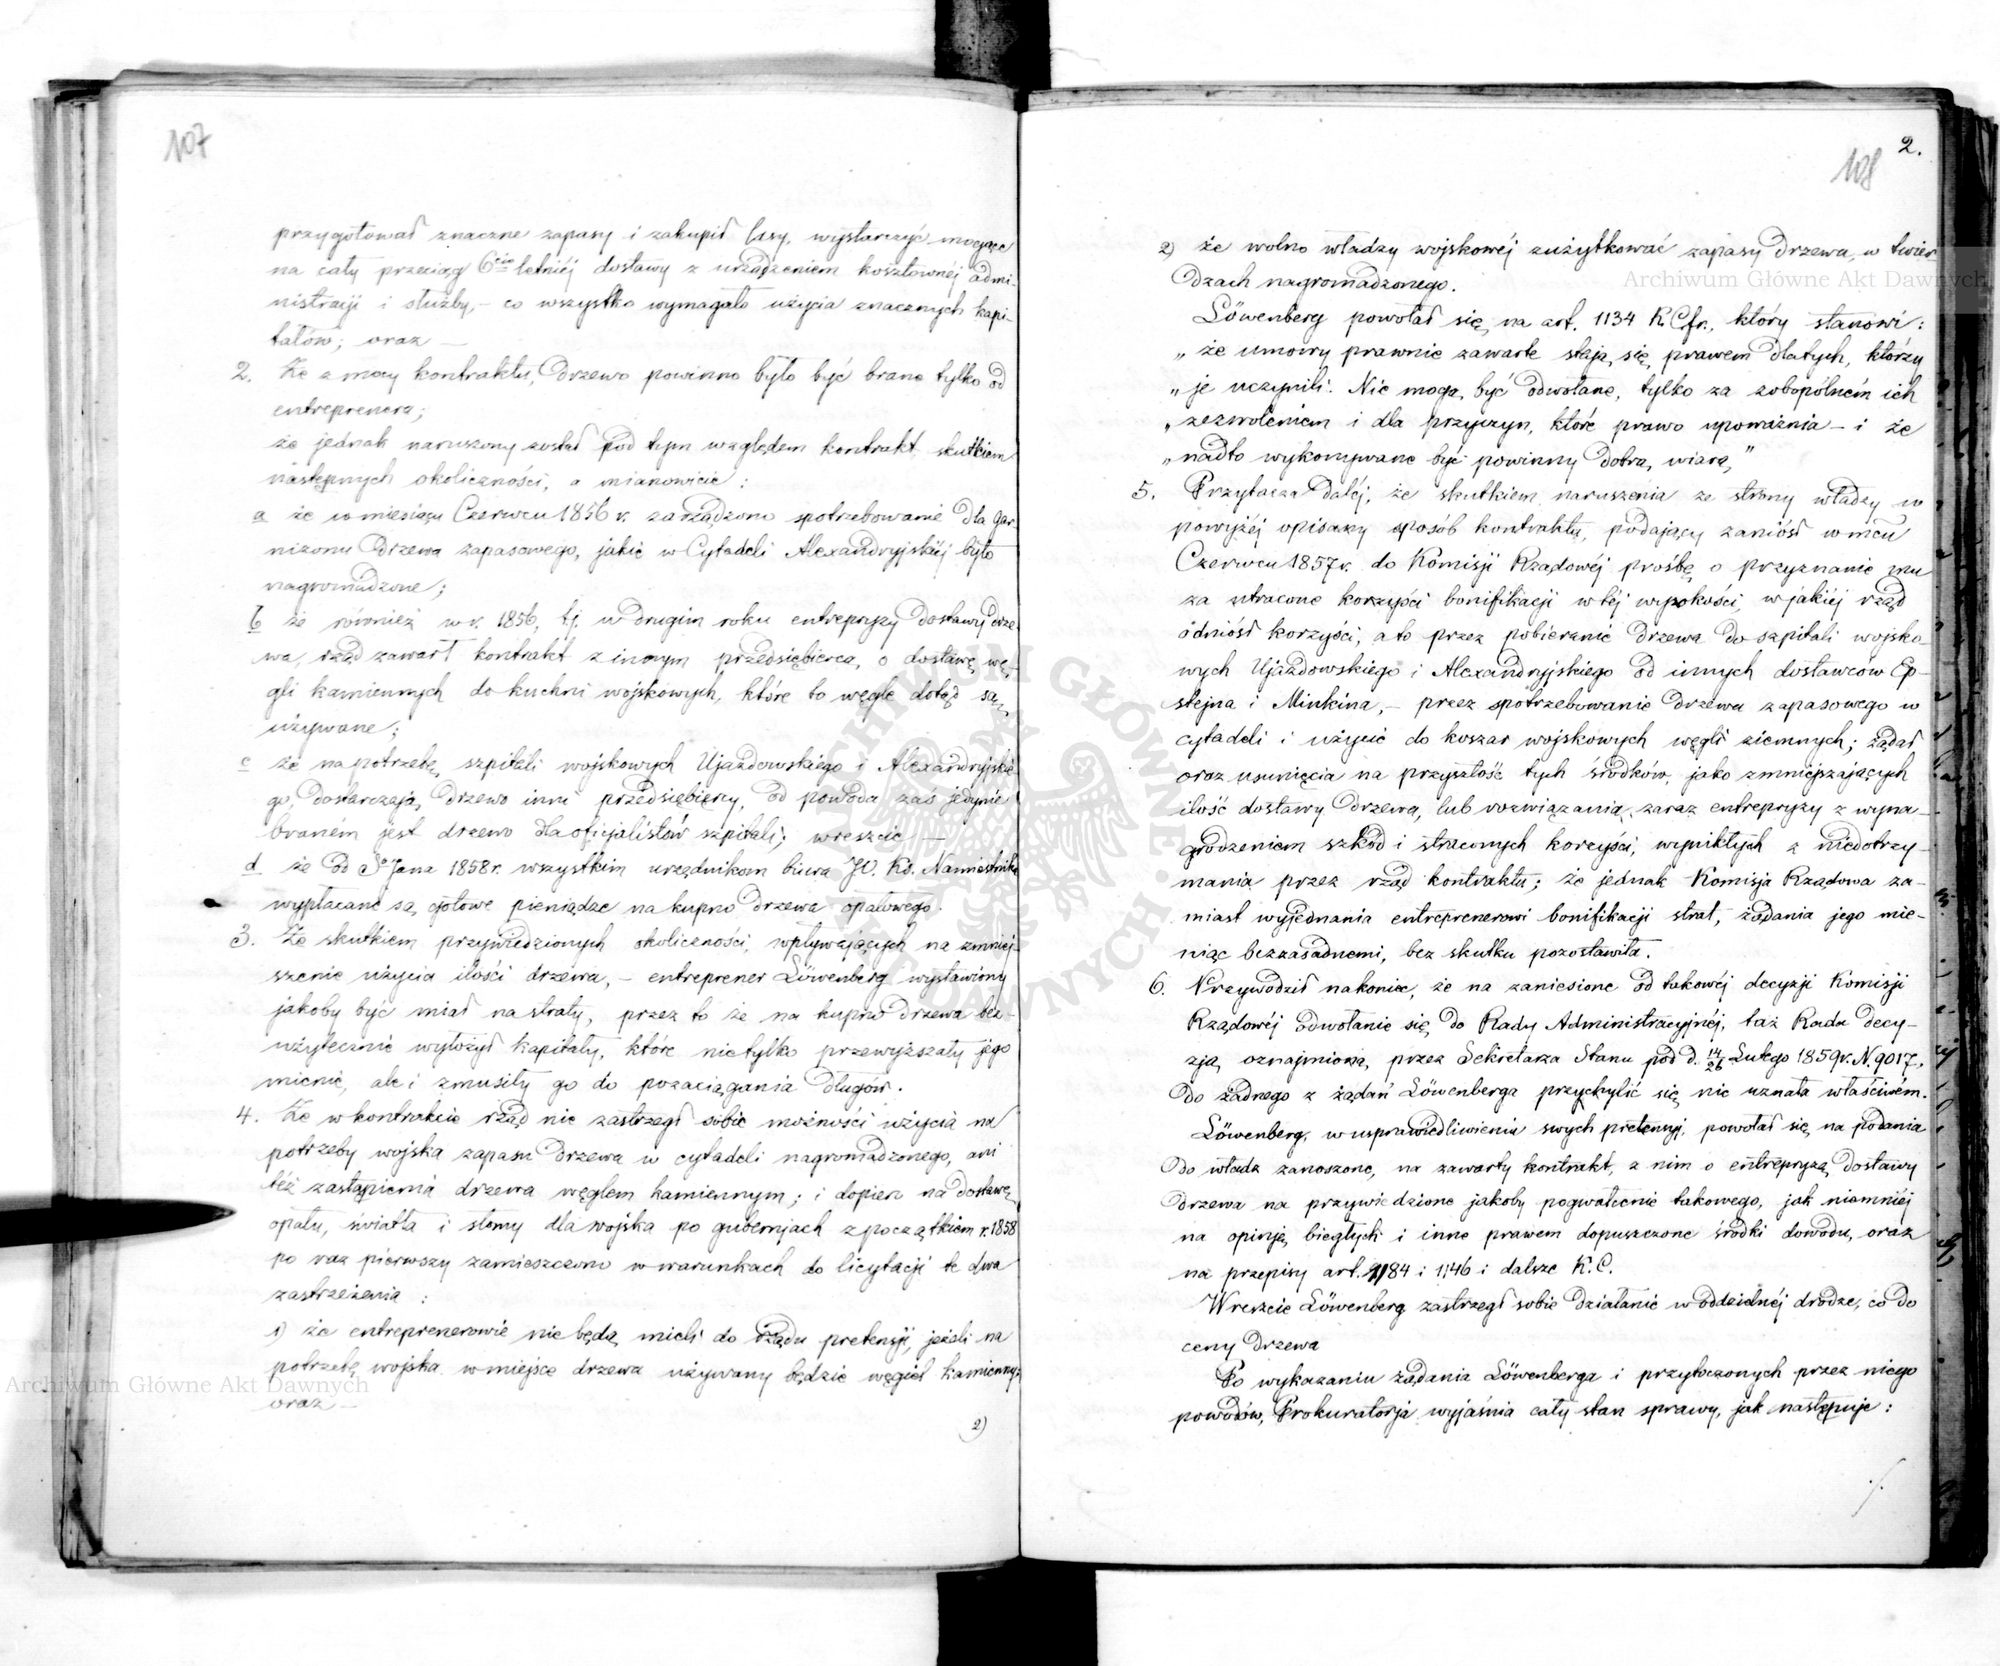 107
przygotował znaczne zapasy i zakupił lasy, wystarczyć mogące
na cały przeciąg 6cio letniéj dostawy z urządzeniem kosztownéj admi-
nistracji i służby, – co wszystko wymagało użycia znacznych kapi-
tałów; oraz —
2. Że z mocy kontraktu, drzewo powinno było być brane tylko od
entreprenera;
że jednak naruszony został pod tym względem kontrakt skutkiem
następnych okoliczności, a mianowicie :
a że w miesiącu Czerwcu 1856 r. zarządzono spotrzebowanie dla gar-
nizonu drzewa zapasowego, jakie w Cytadeli Alexandryjskiéj było
nagromadzone;
b że również w r. 1856, tj. w drugim roku entrepryzy dostawy drze-
wa, rząd zawarł kontrakt z innym przedsiębiercą, o dostawę wę-
gli kamiennych do kuchni wojskowych, które to węgle dotąd są
używane;
c że na potrzebę szpitali wojskowych Ujazdowskiego i Alexandryjskie
go, dostarczają drzewo inni przedsiębiercy, od powoda zaś jedynie
braném jest drzewo dla oficjalistów szpitali; wreszcie —
d że od Sgo Jana 1858 r. wszystkim urzędnikom biura JO. Kś. Namiestnika
wypłacane są gotowe pieniądze na kupno drzewa opałowego.
3. Że skutkiem przywiedzionych okoliczności, wpływających na zmniej-
szenie użycia ilości drzewa, – entreprener Löwenberg wystawiony
jakoby być miał na straty, przez to że na kupno drzewa bez-
użytecznie wyłożył kapitały, które nietylko przewyższały jego
mienie, ale i zmusiły go do pozaciągania długów.
4. Że w kontrakcie rząd nie zastrzegł sobie możności użycia na
potrzeby wojska zapasu drzewa w cytadeli nagromadzonego, ani
téż zastąpienia drzewa węglem kamiennym; i dopiero na dostawę
opału, światła i słomy dla wojska po gubernjach z początkiem r. 1858
po raz pierwszy zamieszczono w warunkach do licytacji te dwa
zastrzeżenia :
1) że entreprenerowie nie będą mieli do rządu pretensji, jeżeli na
potrzebę wojska w miejsce drzewa używany będzie węgiel kamienny;
oraz —
2)
2.
108
2) że wolno władzy wojskowéj zużytkować zapasy drzewa, w twier
dzach nagromadzonego.
Löwenberg powołał się na art. 1134 K.C.fr., który stanowi:
„ że umowy prawnie zawarte stają się prawem dla tych, którzy
„ je uczynili. Nie mogą być odwołane, tylko za zobopólném ich
„ zezwoleniem i dla przyczyn, które prawo upoważnia – i że
„ nadto wykonywane być powinny dobrą wiarą”
5. Przytacza daléj, że skutkiem naruszenia ze strony władzy w
powyżéj opisany sposób kontraktu, podający zaniósł w mcu
Czerwcu 1857 r. do Komisji Rządowéj prośbę o przyznanie mu
za utracone korzyści bonifikacji w téj wysokości, w jakiéj rząd
odniósł korzyści, a to przez pobieranie drzewa do szpitali wojsko
wych Ujazdowskiego i Alexandryjskiego od innych dostawców Ep-
stejna i Minkina, – przez spotrzebowanie drzewa zapasowego w
cytadeli i użycie do koszar wojskowych węgli ziemnych; żądał
oraz usunięcia na przyszłość tych środków, jako zmniejszających
ilość dostawy drzewa, lub rozwiązania zaraz entrepryzy z wyna-
grodzeniem szkód i straconych korzyści, wynikłych z niedotrzy-
mania przez rząd kontraktu; że jednak Komisja Rządowa za-
miast wyjednania entreprenerowi bonifikacji strat, żądania jego mie-
niąc bezzasadnemi, bez skutku pozostawiła.
6. Przywodził nakoniec, że na zaniesione od takowéj decyzji Komisji
Rządowéj odwołanie się do Rady Administracyjnéj, taż Rada decy-
zją oznajmioną przez Sekretarza Stanu pod d. 14/26 Lutego 1859 r. N. 9017,
do żadnego z żądań Löwenberga przychylić się nie uznała właściwém.
Löwenberg, w usprawiedliwieniu swych pretensyj, powołał się na podania
do władz zanoszone, na zawarty kontrakt, z nim o entrepryzę dostawy
drzewa na przywiedzione jakoby pogwałcenie takowego, jak niemniéj
na opinję biegłych i inne prawem dopuszczone środki dowodu, oraz
na przepisy art. 1184 i 1146 i dalsze K.C.
Wreszcie Löwenberg zastrzegł sobie działanie w oddzielnéj drodze, co do
ceny drzewa
Po wykazaniu żądania Löwenberga i przytoczonych przez niego
powodów, Prokuratorja wyjaśnia cały stan sprawy, jak następuje :
./.
Archiwum Główne Akt Dawnych
Archiwum Główne Akt Dawnych